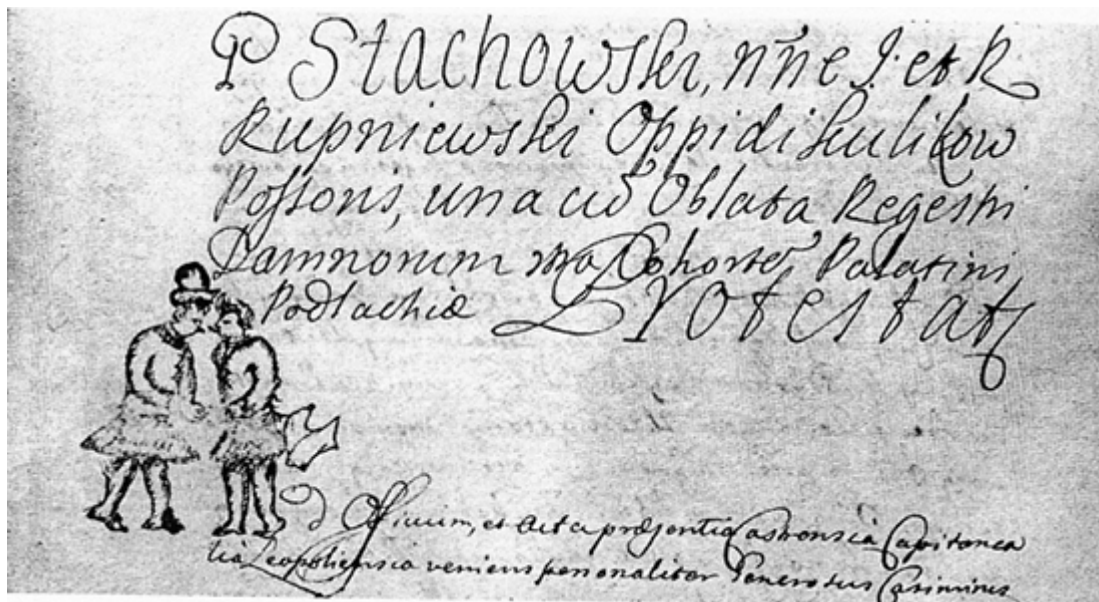 P Stachowski, nñe J. et R
Rupniewski Oppidi Kulikow
Possoris, una cū Oblata Regestri
Damnorum Cohortē Palatini
Podlachiæ Protestatʳ
Officium, et Acta præsentia Castrensia Capitanea
lia Leopoliensia veniens personaliter Generosus Casimirus